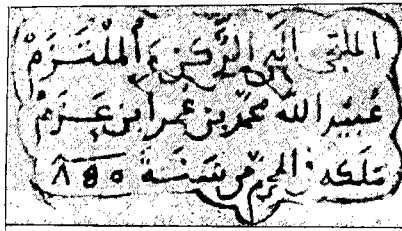 الملتجى إلى الركن والملتزم
عبيد الله محمد بن عمر ابن عزم
ملكه في المحرم من سنة ٨٥٥